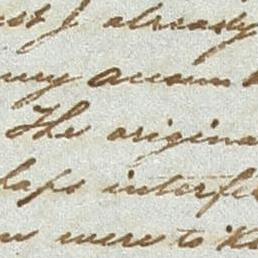 I already
my accoun
The origina
haps interfe
were to